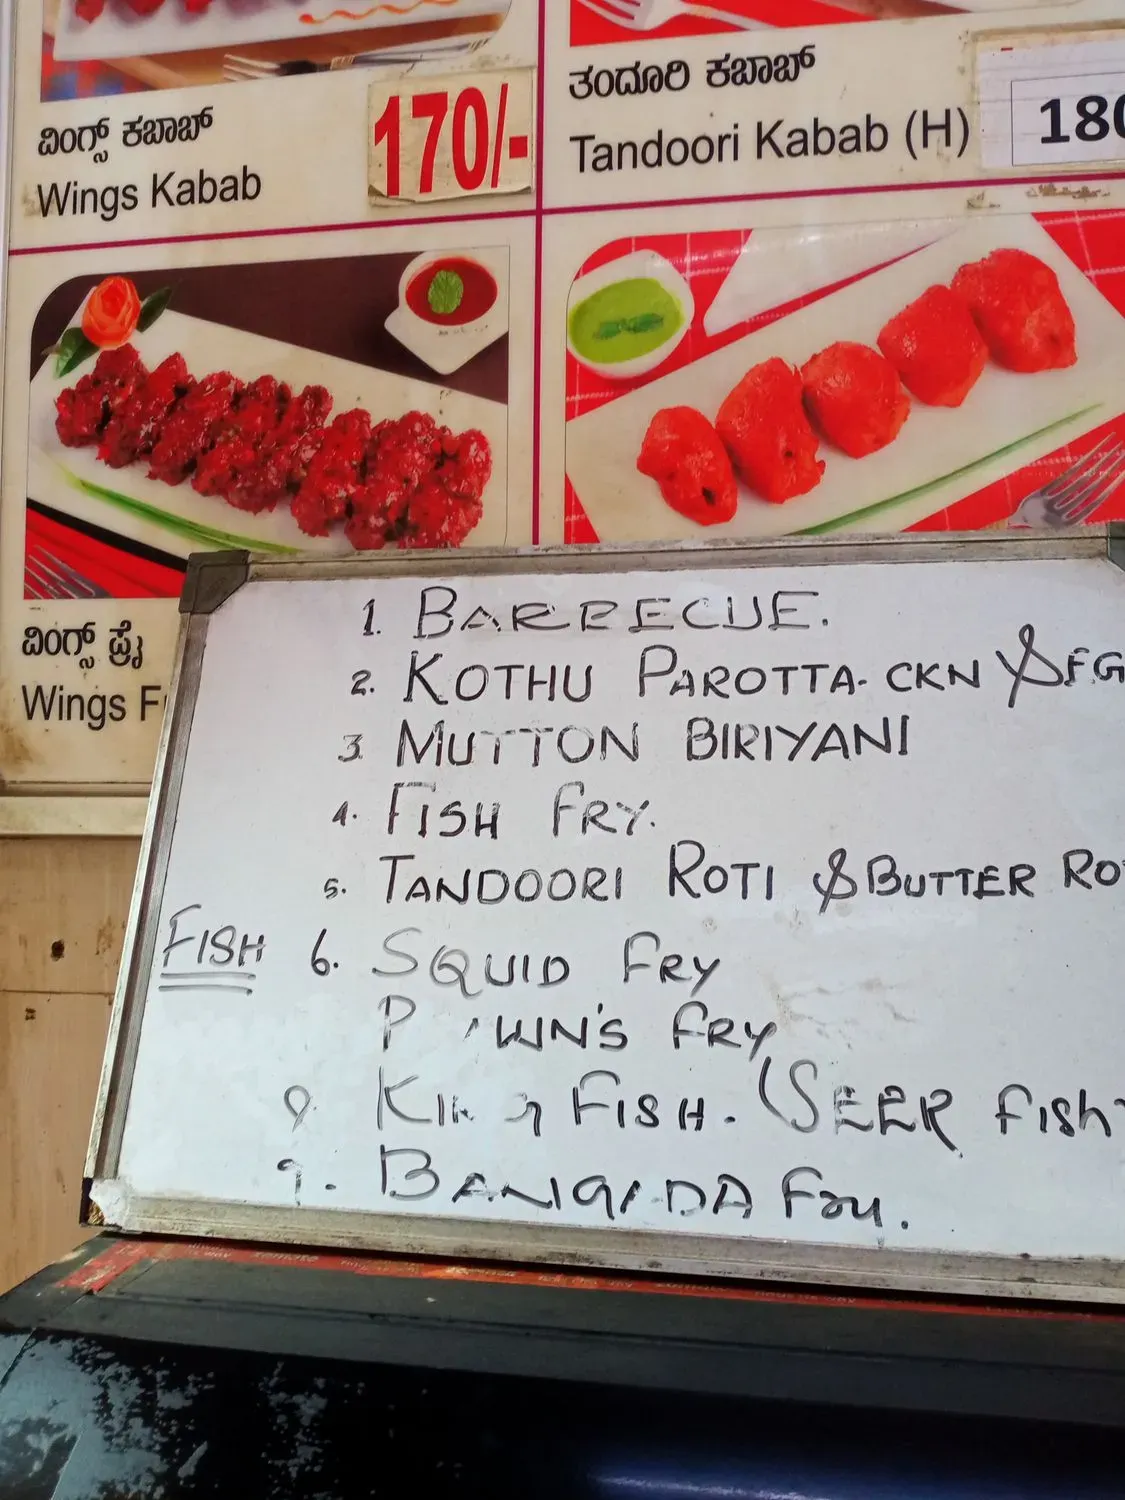 ವಿಂಗ್ಸ್ ಕಬಾಬ್
Wings Kabab
170/-
ತಂದೂರಿ ಕಬಾಬ್
Tandoori Kabab (H)
180
ವಿಂಗ್ಸ್ ಫ್ರೈ
Wings F
1. BARBECUE.
2. KOTHU PAROTTA- CKN & EG
3. MUTTON BIRIYANI
4. FISH FRY.
5. TANDOORI ROTI & BUTTER RO
FISH 6. SQUID FRY
FRY
FISH. (SEER FISH
9. FRY.